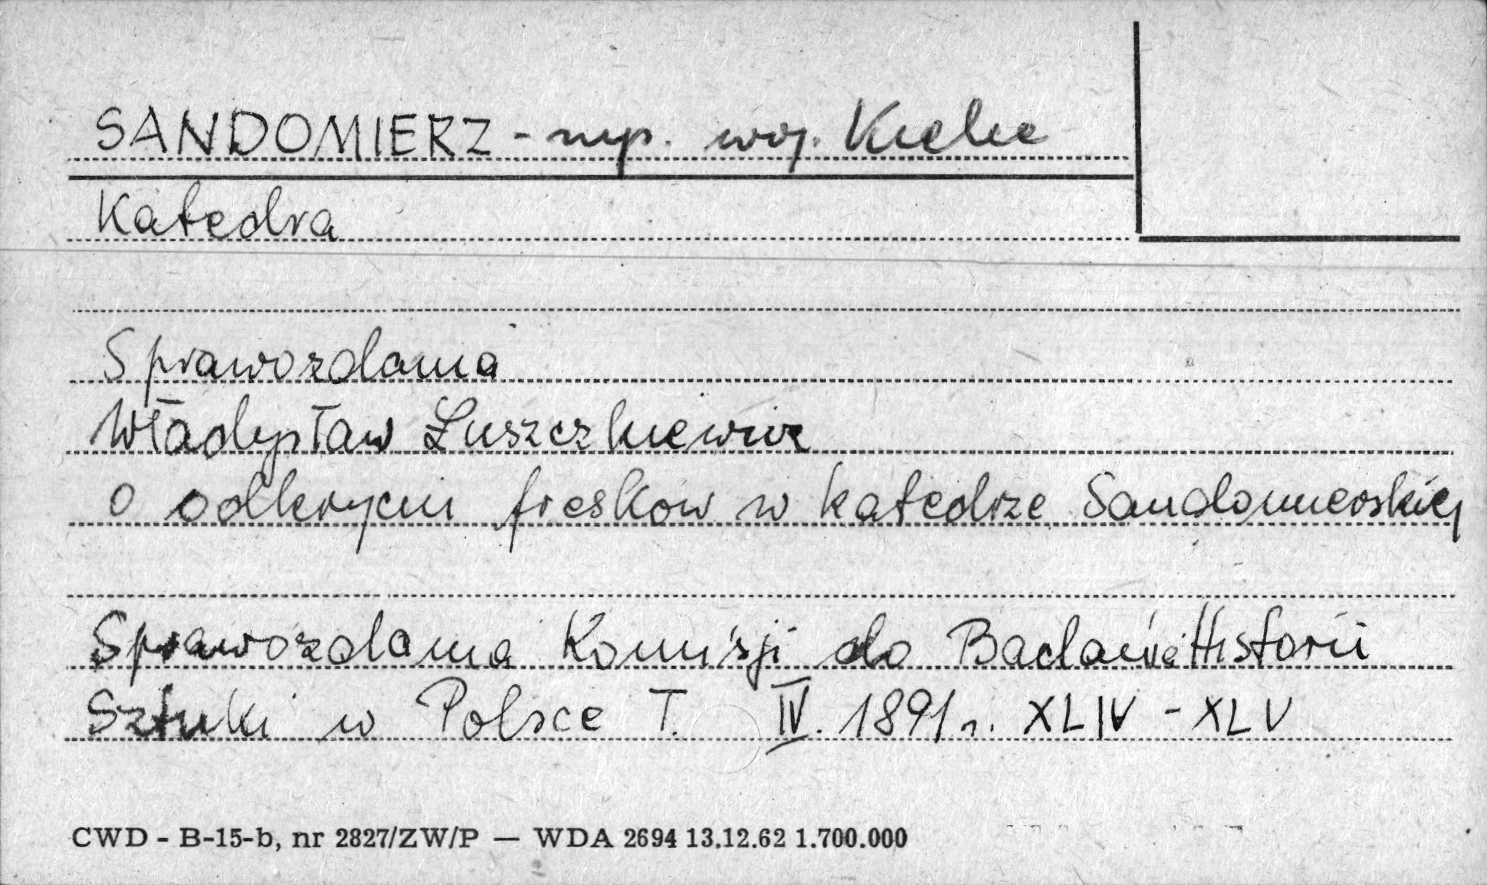 SANDOMIERZ - mp. woj. Kielce
Katedra
Sprawozdania
Władysław Łuszczkiewicz
o odkryciu fresków w katedrze Sandomierskiej
Sprawozdania Komisji do Badania Historii
Sztuki w Polsce T. IV. 1891 r. XLIV - XLV
CWD - B-15-b, nr 2827/ZW/P — WDA 2694 13.12.62 1.700.000